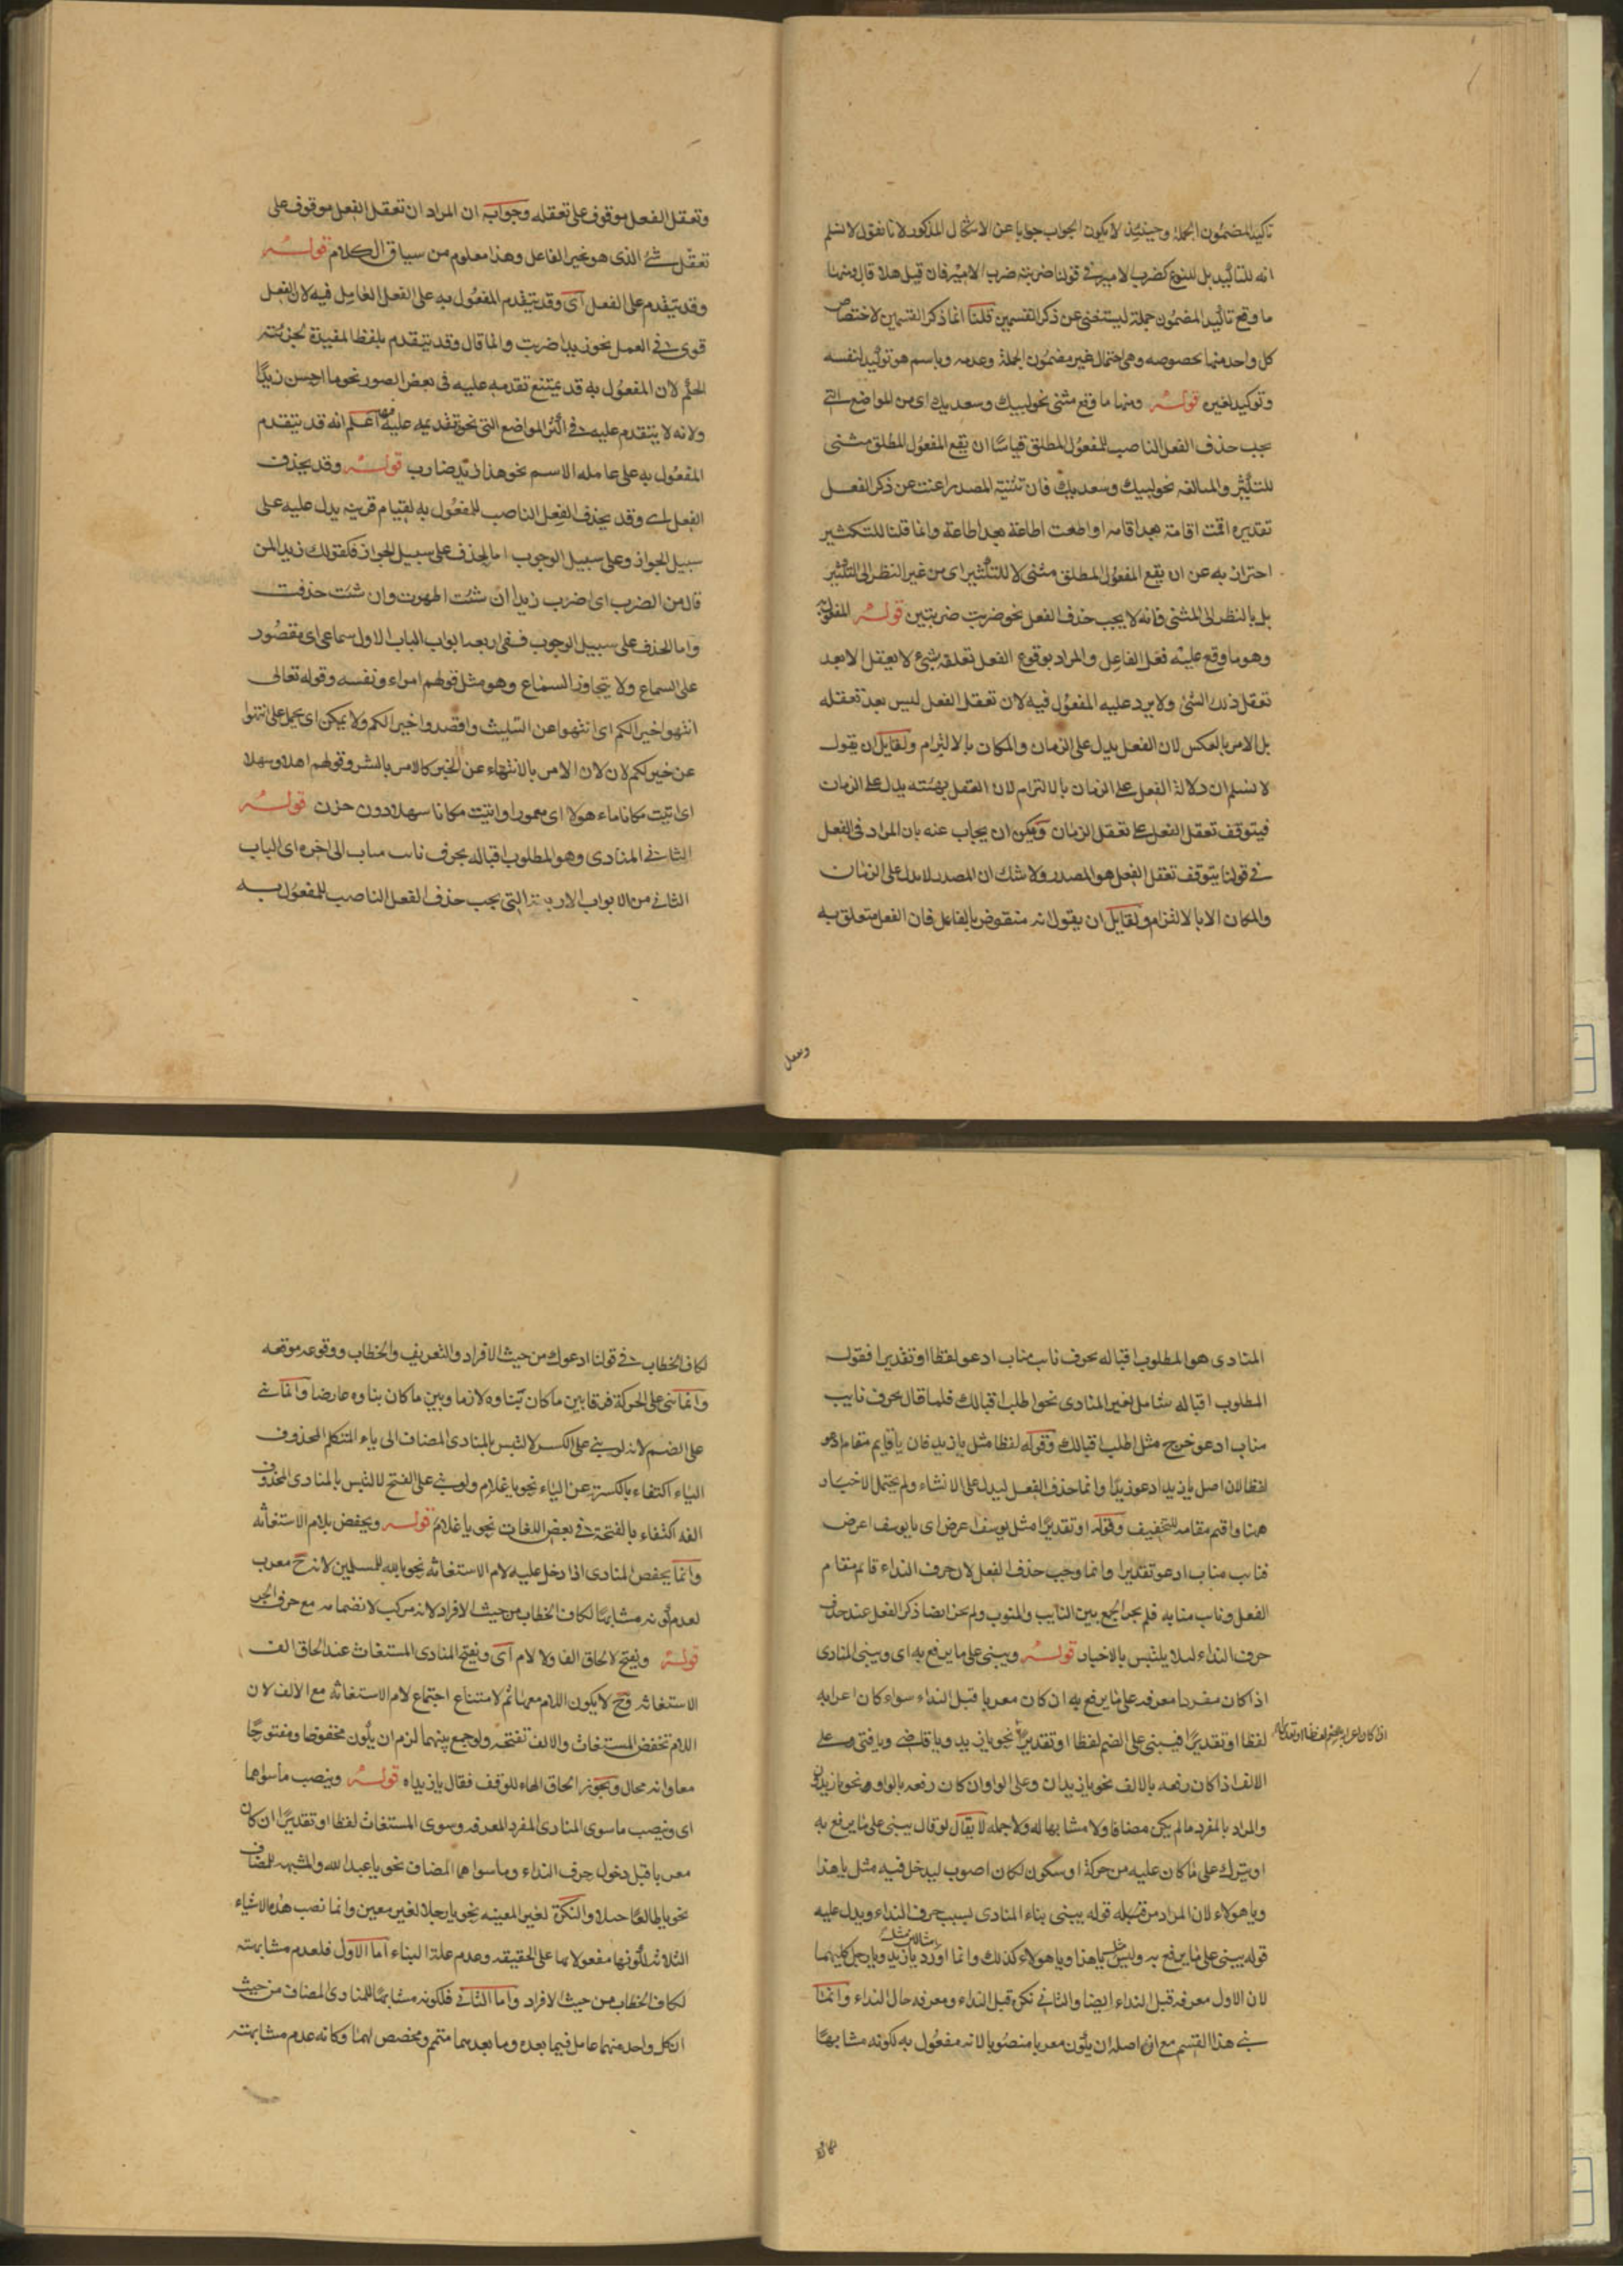 تاكيد المضمون الجملة وحينئذ لا يكون الجواب جوابا عن الاشكال المذكور لانا نقول لا نسلم
انه للتاكيد بل للنوع كضرب الامير فى قولنا ضربته ضرب الامير فان قيل هلا قال ومنها
ما وقع تاكيد المضمون جملة ليستغنى عن ذكر القسمين قلنا انما ذكر القسمين لاختصاص
كل واحد منهما بخصوصه وهى احتمال غير مضمون الجملة وعدمه وباسم هو توكيد لنفسه
وتوكيد لغيره قوله ومنها ما وقع مثنى نحو لبيك وسعديك اى من المواضع التى
يجب حذف الفعل الناصب للمفعول المطلق قياسا ان يقع المفعول المطلق مثنى
للتكثير والمبالغه نحو لبيك وسعديك فان تثنية المصدر اغنت عن ذكر الفعل
تقديره اقمت اقامة بعد اقامه او اطعت اطاعة بعد اطاعة وانما قلنا للتكثير
احتراز به عن ان يقع المفعول المطلق مثنى لا للتكثير اى من غير النظر الى التكثير
بل بالنظر الى المثنى فانه لا يجب حذف الفعل نحو ضربت ضربتين قوله المفعول به
وهو ما وقع عليه فعل الفاعل والمراد بوقوع الفعل تعلقه بشئ لا يعقل الا بعد
تعقل ذلك الشئ ولا يرد عليه المفعول فيه لان تعقل الفعل ليس بعد تعقله
بل الامر بالعكس لان الفعل يدل على الزمان والمكان بالالتزام ولقايل ان يقول
لا نسلم ان دلالة الفعل على الزمان بالالتزام لان الفعل بهيئته يدل على الزمان
فيتوقف تعقل الفعل على تعقل الزمان ويمكن ان يجاب عنه بان المراد فى الفعل
فى قولنا يتوقف تعقل الفعل هو المصدر ولا شك ان المصدر لا يدل على الزمان
والمكان الا بالالتزام ولقايل ان يقول انه منقوض بالفاعل فان الفعل متعلق به
وتعقل
وتعقل الفعل موقوف على تعقله وجوابه ان المراد ان تعقل الفعل موقوف على
تعقل شئ الذى هو غير الفاعل وهذا معلوم من سياق الكلام قوله
وقد يتقدم على الفعل اى وقد يتقدم المفعول به على الفعل العامل فيه لان الفعل
قوى فى العمل نحو زيدا ضربت وانما قال وقد يتقدم بلفظ المفيدة لجزئيته
الحكم لان المفعول به قد يمتنع تقدمه عليه فى بعض الصور نحو ما احسن زيدا
ولانه لا يتقدم عليه فى اكثر المواضع التى نحو تقديمه عليه فيها اعلم انه قد يتقدم
المفعول به على عامله الاسم نحو هذا زيد ضارب قوله وقد يحذف
الفعل اى وقد يحذف الفعل الناصب للمفعول به لقيام قرينه يدل عليه على
سبيل الجواز وعلى سبيل الوجوب اما الحذف على سبيل الجواز فكقولك زيدا لمن
قال من الضرب اى اضرب زيدا ان شئت اظهرت وان شئت حذفت
واما الحذف على سبيل الوجوب ففى اربعه ابواب الباب الاول سماعى اى مقصور
على السماع ولا يتجاوز السماع وهو مثل قولهم امراء ونفسه وقوله تعالى
انتهوا خيرا لكم اى انتهوا عن التثليث واقصدوا خيرا لكم ولا يمكن ان يحمل على انتهوا
عن خير لكم لان الامر بالانتهاء عن الخير كالامر بالشر وقولهم اهلا وسهلا
اى اتيت مكانا ماءهولا اى معمورا واتيت مكانا سهلا دون حزن قوله
الثانى المنادى وهو المطلوب اقباله بحرف نايب مناب الى اخره اى الباب
الثانى من الابواب الاربعة التى يجب حذف الفعل الناصب للمفعول به
المنادى هو المطلوب اقباله بحرف نايب مناب ادعو لفظا او تقديرا فقوله
المطلوب اقباله شامل لغير المنادى نحو اطلب اقبالك فلما قال بحرف نايب
مناب ادعو خرج مثل اطلب اقبالك وقوله لفظا مثل يا زيد فان يا قايم مقام ادعو
لفظا لان اصل يا زيد ادعو زيدا وانما حذف الفعل ليدل على الانشاء ولم يحتمل الاخبار
هنا واقيم مقامه للتخفيف وقوله او تقديرا مثل يوسف اعرض اى يا يوسف اعرض
فنايب مناب ادعو تقديرا وانما وجب حذف الفعل لان حرف النداء قايم مقام
الفعل وناب منابه فلم يجز الجمع بين النايب والمنوب ولم يجز ايضا ذكر الفعل عند حذف
حرف النداء لئلا يلتبس بالاخبار قوله ويبنى على ما يرفع به اى ويبنى المنادى
اذا كان مفردا معرفه على ما يرفع به ان كان معربا قبل النداء سواء كان اعرابه
لفظا او تقديرا فيبنى على الضم لفظا او تقديرا نحو يا زيد ويا قاضى ويا فتى وعلى
الالف اذا كان رفعه بالالف نحو يا زيدان وعلى الواو ان كان رفعه بالواو نحو يا زيدون
والمراد بالمفرد ما لم يكن مضافا ولا مشابها له ولا جمله لا يقال لو قال يبنى على ما يرفع به
او يترك على ما كان عليه من حركة او سكون لكان اصوب ليدخل فيه مثل يا هذا
ويا هولاء لان المراد من قبله قوله يبنى بناء المنادى بسبب حرف النداء ويدل عليه
قوله يبنى على ما يرفع به وليس مثل يا هذا ويا هولاء كذلك وانما اورد يا زيد ويا رجل كليهما
لان الاول معرفه قبل النداء ايضا والثانى نكرة قبل النداء ومعرفه حال النداء وانما
بنى هذا القسم مع ان اصله ان يكون معربا منصوبا لانه مفعول به لكونه مشابها
لكاف الخطاب فى قولنا ادعوك من حيث الافراد والتعريف والخطاب ووقوعه موقعه
وانما بنى على الحركة فرقا بين ما كان بناوه لازما وبين ما كان بناوه عارضا وانما بنى
على الضم لانه لو بنى على الكسر لالتبس بالمنادى المضاف الى ياء المتكلم المحذوف
الياء اكتفاء بالكسرة عن الياء نحو يا غلام ولو بنى على الفتح لالتبس بالمنادى المحذوف
الفه اكتفاء بالفتحة فى بعض اللغات نحو يا غلام قوله ويخفض بلام الاستغاثه
وانما يخفض المنادى اذا دخل عليه لام الاستغاثه نحو يا لله للمسلمين لانه ح معرب
لعدم كونه مشابها لكاف الخطاب من حيث الافراد لانه مركب لانضمامه مع حرف الجر
قوله ويفتح لالحاق الفها ولا لام اى ويفتح المنادى المستغاث عند الحاق الف
الاستغاثه فح لا يكون اللام معها ثم لامتناع اجتماع لام الاستغاثه مع الالف لان
اللام تخفض المستغاث والالف تفتحه ولو جمع بينهما لزم ان يكون مخفوضا ومفتوحا
معا وانه محال ويجوز الحاق الهاء للوقف فقال يا زيداه قوله وينصب ما سواهما
اى وينصب ما سوى المنادى المفرد المعرفه وسوى المستغاث لفظا او تقديرا ان كان
معربا قبل دخول حرف النداء وما سواهما المضاف نحو يا عبد الله والمشبه للمضاف
نحو يا طالعا جبلا والنكرة لغير المعينه نحو يا رجلا لغير معين وانما نصب هذه الاشياء
الثلاثه لكونها مفعولا بها على الحقيقه وعدم علة البناء اما الاول فلعدم مشابهته
لكاف الخطاب من حيث الافراد واما الثانى فلكونه مشابها للمنادى المضاف من حيث
ان كل واحد منهما عامل فيما بعده وما بعدهما متمم ومخصص لهما وكانه عدم مشابهته